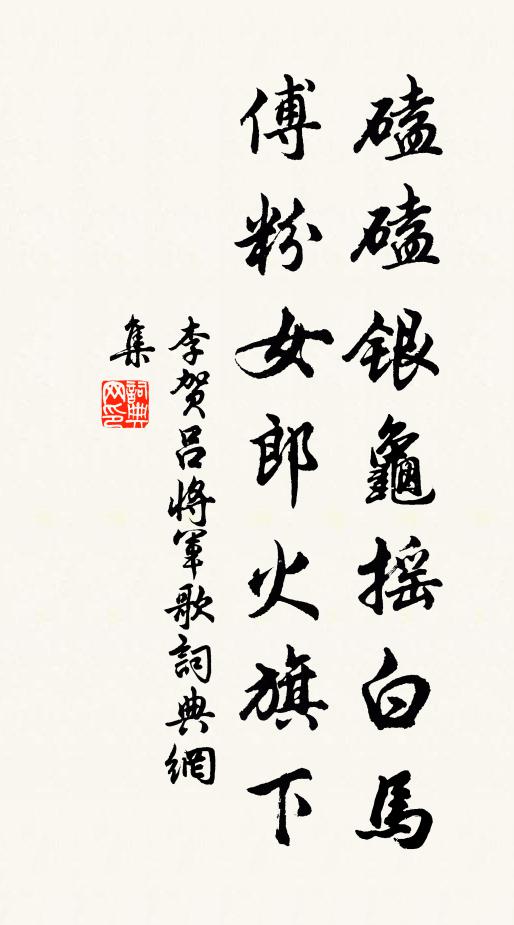 磕磕銀龜摇白馬
傅粉女郎火旗下
李贺吕將軍歌詞典網
集
詞典
网印